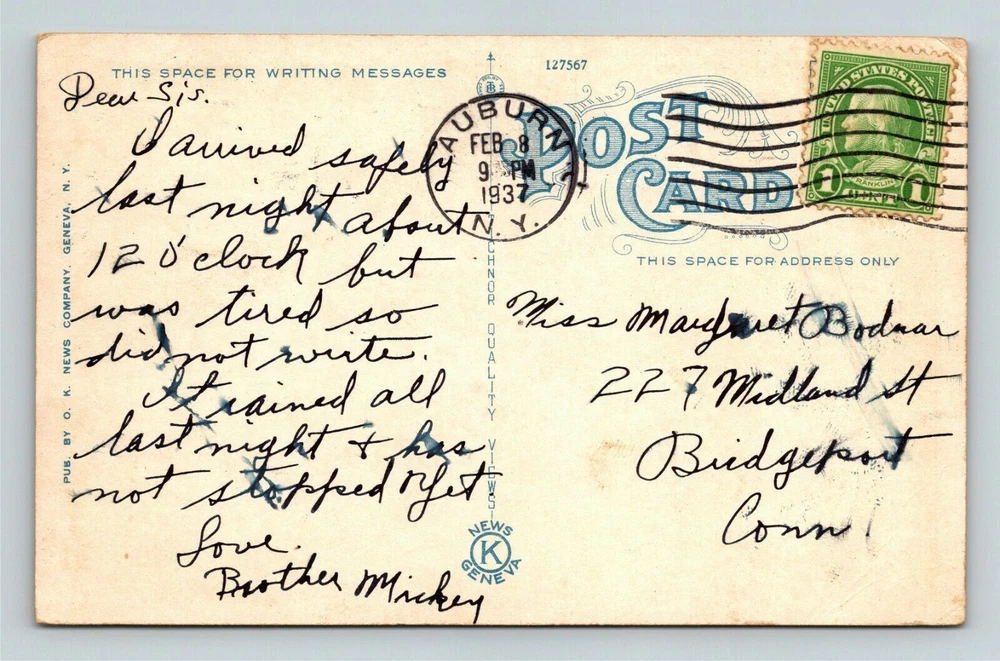 THIS SPACE FOR WRITING MESSAGES
127567
POST
CARD
AUBURN
FEB 8
9 PM
1937
N.Y.
UNITED STATES POSTAGE
FRANKLIN
1 1
THIS SPACE FOR ADDRESS ONLY
Dear Sis.
I arrived safely
last night about
12 O'clock but
was tired so
did not write.
It rained all
last night & has
not stopped yet.
Love.
Brother Mickey
Miss Margaret Bodnar
227 Midland St
Bridgeport
Conn
PUB. BY O. K. NEWS COMPANY, GENEVA, N. Y.
TICHNOR QUALITY VIEWS
NEWS
K
GENEVA